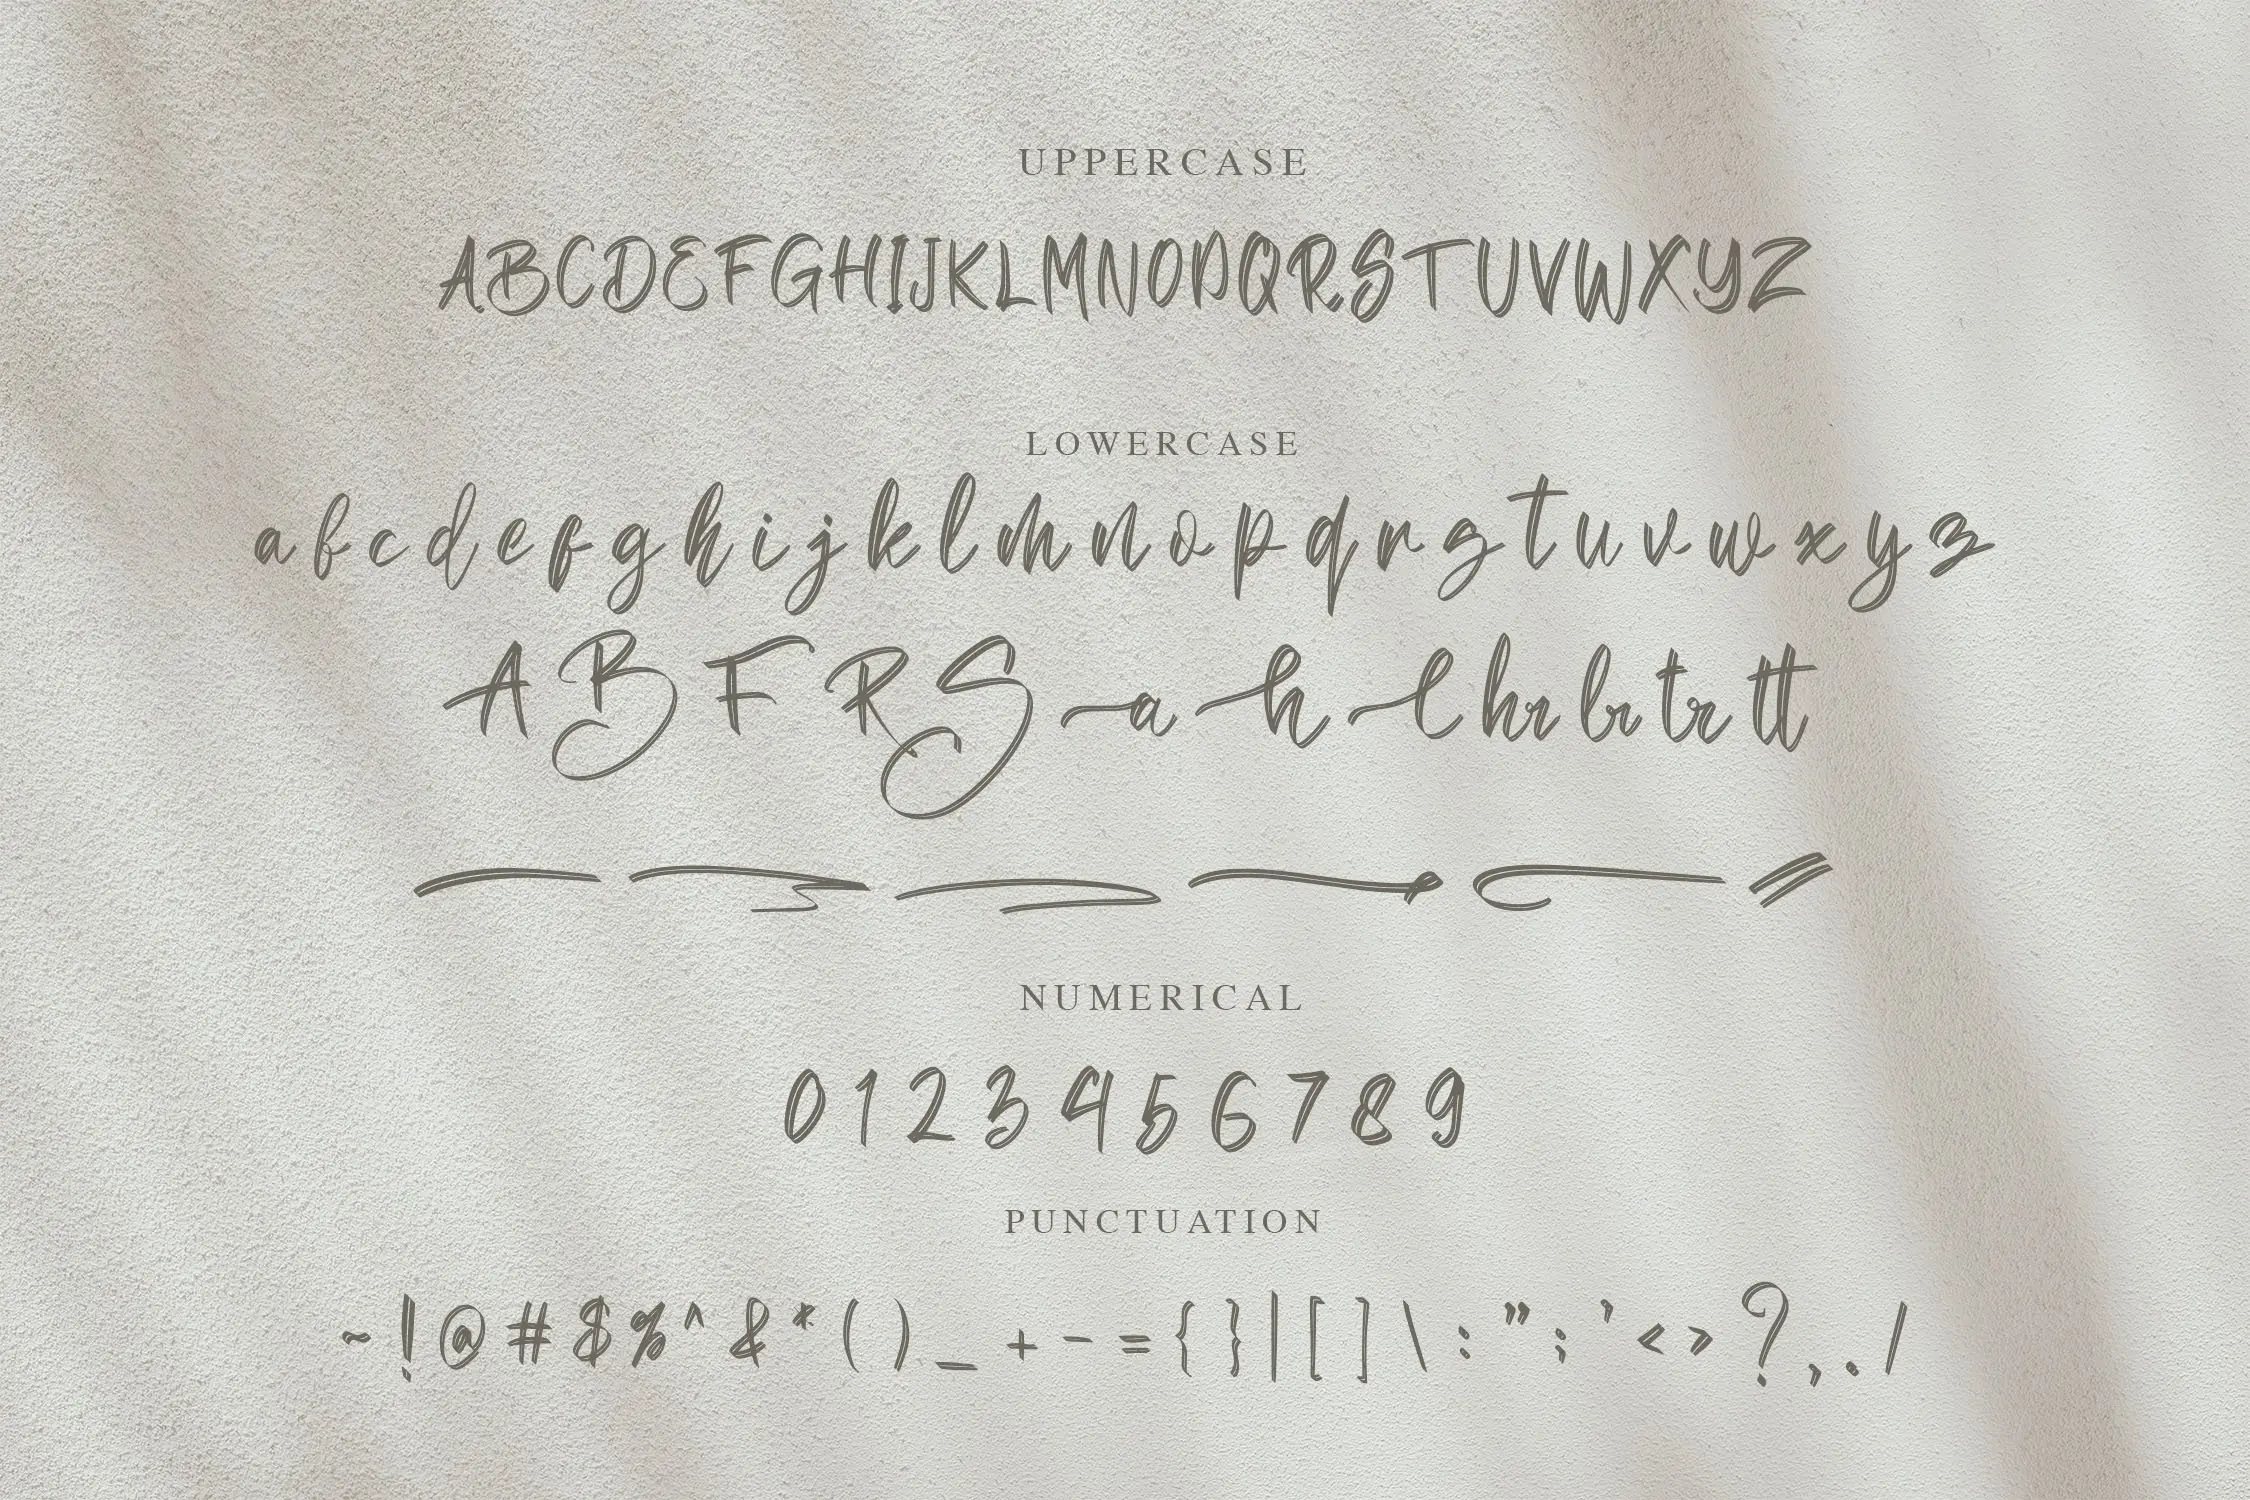 UPPERCASE
ABCDEFGHIJKLMNOPQRSTUVWXYZ
LOWERCASE
a b c d e f g h i j k l m n o p q r s t u v w x y z
A B F R S a h l hr br tr tt
NUMERICAL
0 1 2 3 4 5 6 7 8 9
PUNCTUATION
~ ! @ # $ % ^ & * ( ) _ + - = { } | [ ] \ : " ; ' < > ? , . /